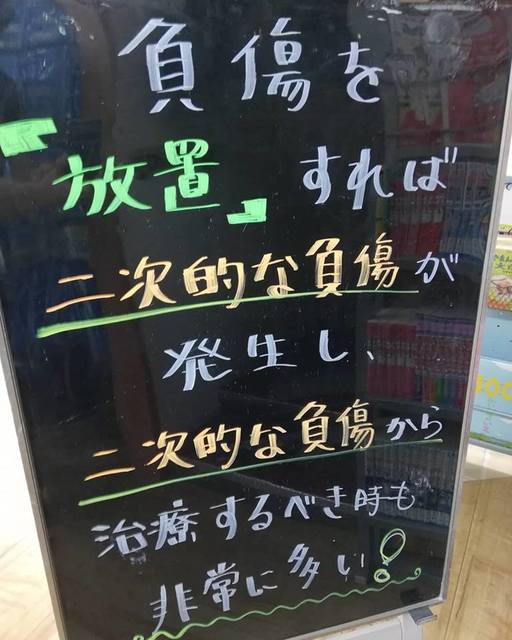 負傷を
『放置』すれば
二次的な負傷が
発生し、
二次的な負傷から
治療するべき時も
非常に多い!